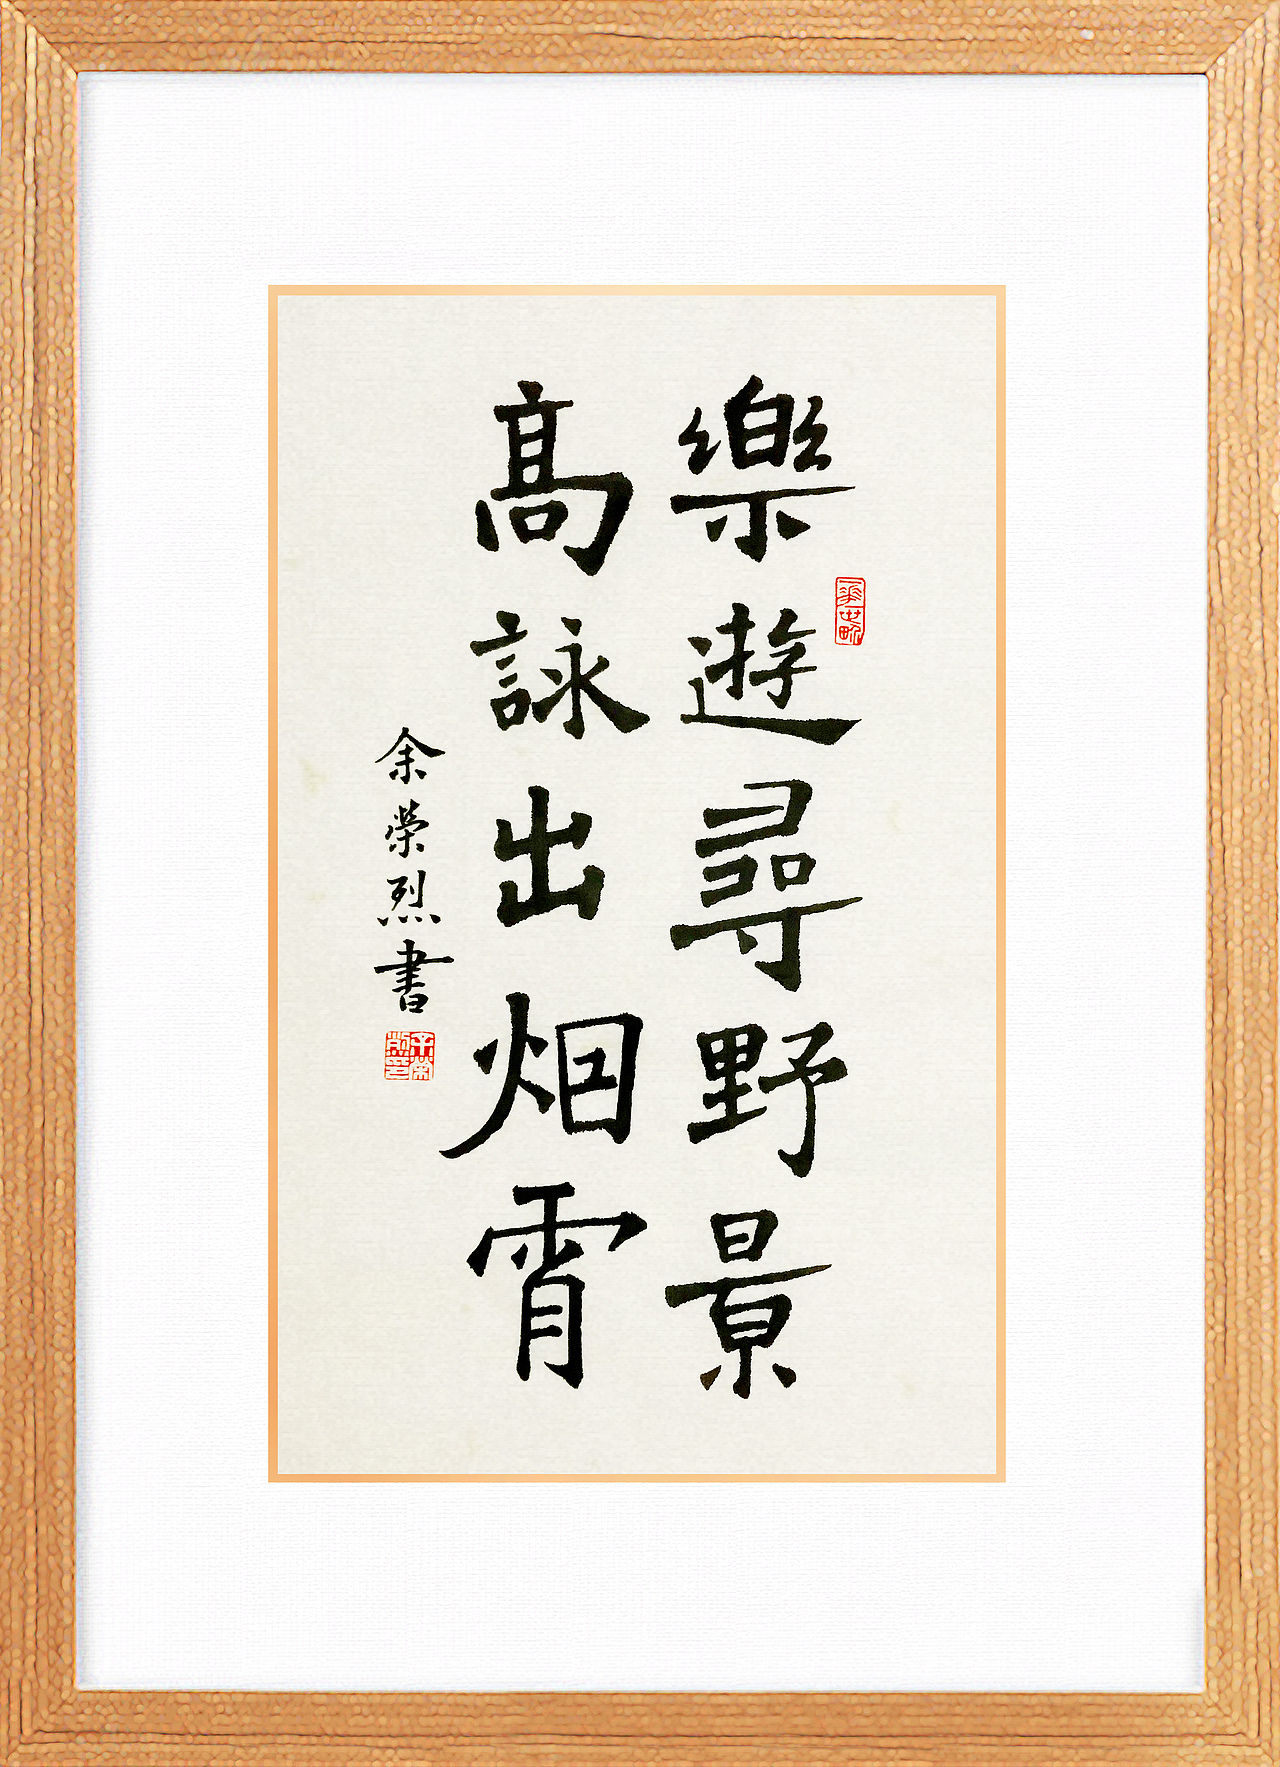 樂遊尋野景
高詠出烟霄
余榮烈書